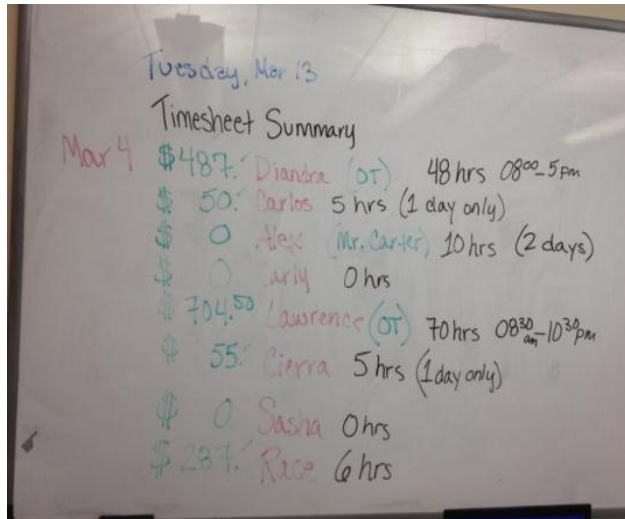 Tuesday, Mar 13
Timesheet Summary
Mar 4 $487. Diandra (OT) 48 hrs 08⁰⁰-5pm
$ 50. Carlos 5 hrs (1 day only)
$ 0 Alex (Mr. Carter) 10 hrs (2 days)
$ 0 Carly 0 hrs
$ 704.⁵⁰ Lawrence (OT) 70 hrs 08³⁰am-10³⁰pm
$ 55. Cierra 5 hrs (1 day only)
$ 0 Sasha 0 hrs
$ 287. Race 6 hrs